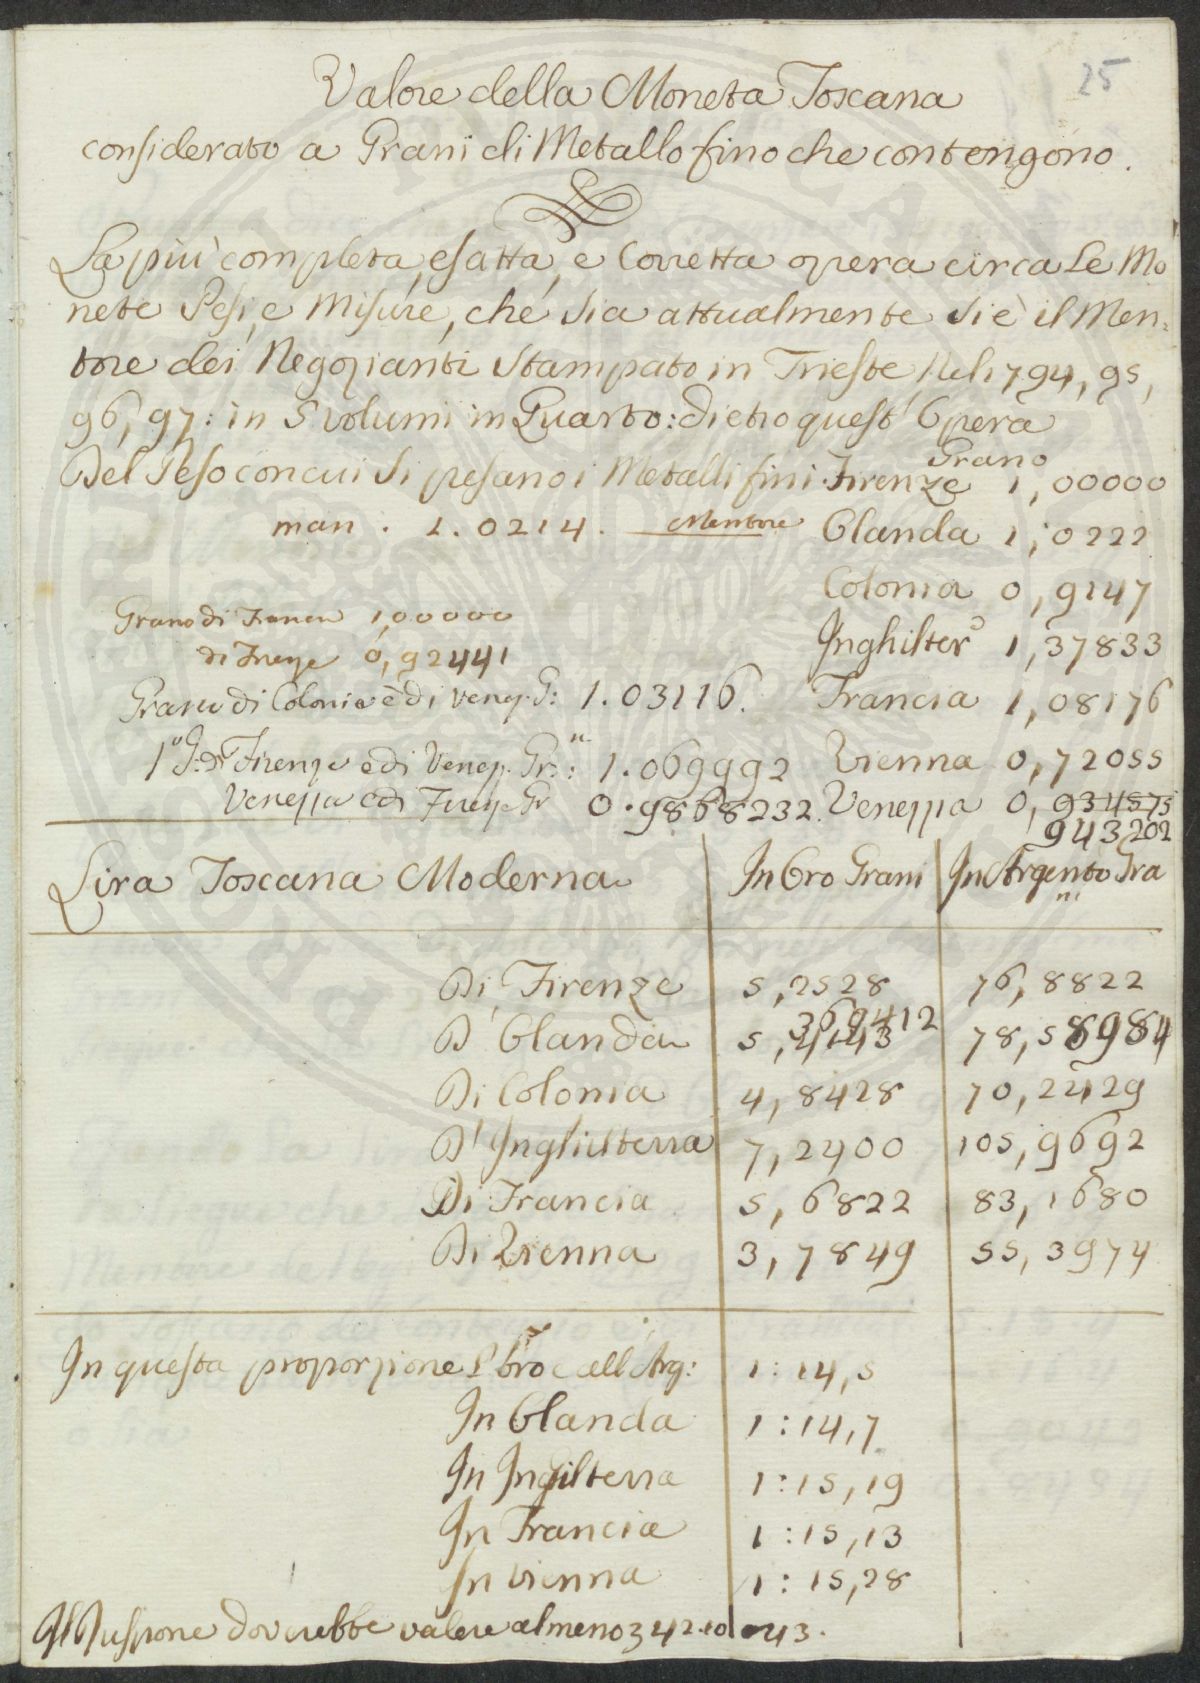 25
Valore della Moneta Toscana
considerato a Grani di Metallo fino che contengono.
La più completa, esatta, e Corretta opera circa Le Mo
nete Pesi, e Misure, che sia attualmente si è il Men=
tore dei Negozianti Stampato in Trieste, Nel 1794, 95,
96, 97: in 5 volumi in Quarto: dietro quest' Opera
Del Peso con cui si pesano i Metalli fini. Firenze Grano 1,00000
man. 1.0214. Mentore Olanda 1,0222
Colonia 0,9147
Grano di Francia 1,00000
Inghilterª 1,37833
di Firenze 0,92441
Grano di Colonia è di Venez. G: 1.03116. Francia 1,08176
1º G: di Firenze è di Venez. Gr.ⁿ: 1.069992 Vienna 0,72055
Venezia è di Firenze Gr 0.9868232. Venezia 0,934575
943202
Lira Toscana Moderna In Oro Grani In Argento Gra
ni
Di Firenze 5,2528 76,8822
369412
D'Olanda 5,4143 78,58984
Di Colonia 4,8428 70,2429
D'Inghilterra 7,2400 105,9692
Di Francia 5,6822 83,1680
Di Vienna 3,7849 55,3974
In questa proporzione l'Oro è all'Arg: 1:14,5
In Olanda 1:14,7
In Inghilterra 1:15,19
In Francia 1:15,13
In Vienna 1:15,28
Il Ruspone dovrebbe valere almeno 342.10 43.